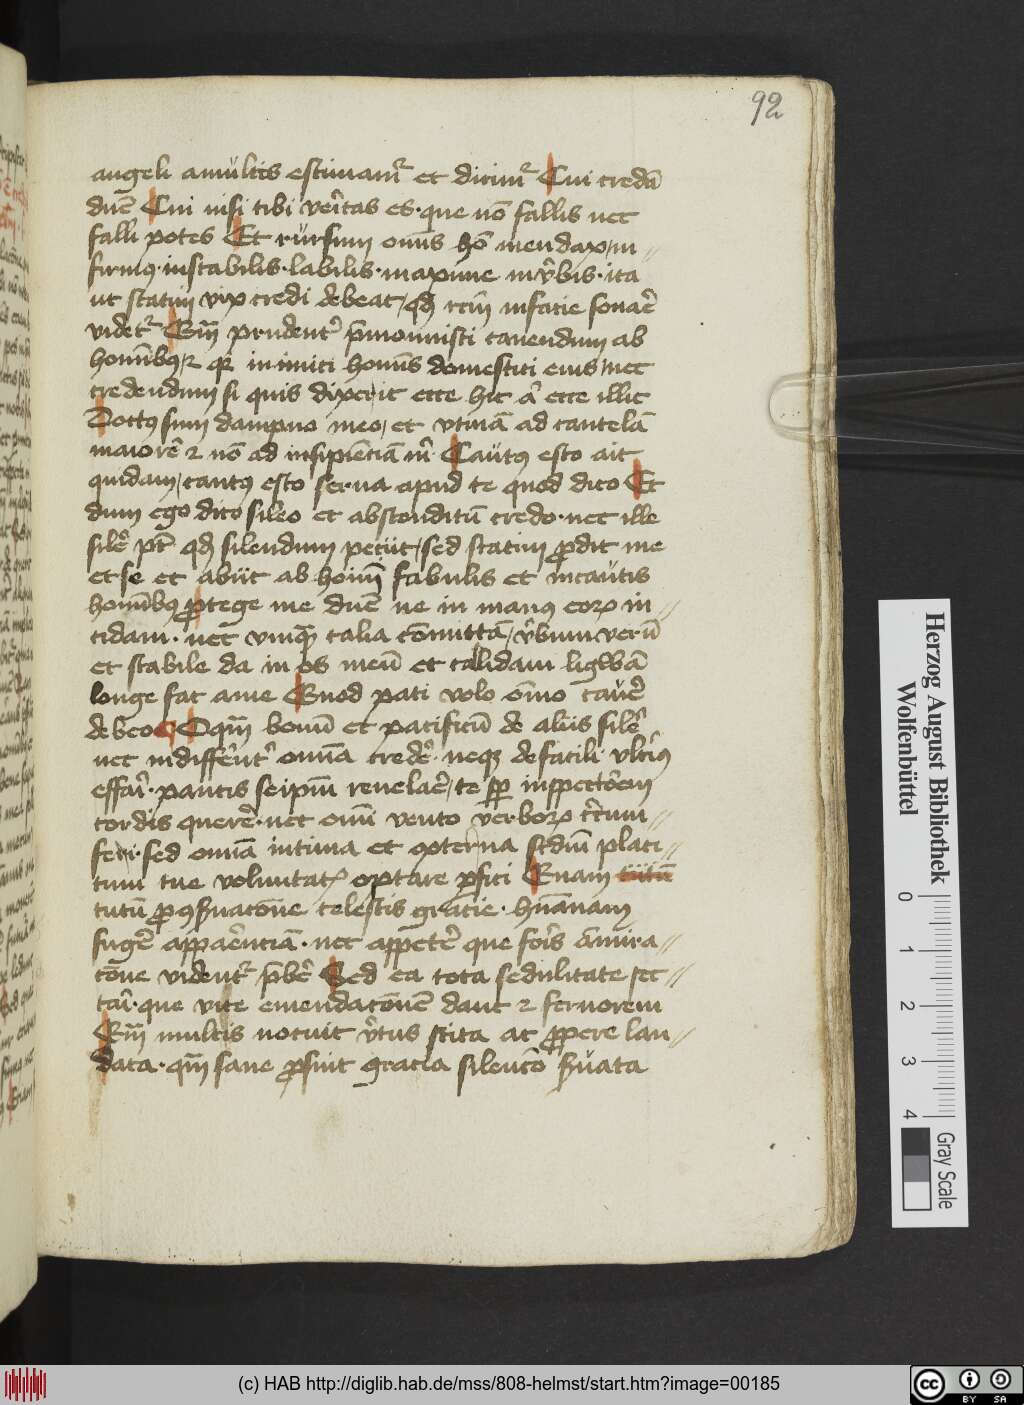 92
angeli a multis estimamr̉ et dicimr̉ Cui credā
dn̄e Cui nisi tibi veritas es · que nō fallis nec
falli potes Et rursum om̄is hō mendax / in
firmꝯ · instabilis · labilis · maxime in v̉bis · ita
ut statim vix credi debeat / qd̄ rc̄m in facie sonar̄e
videtr̉ Qm̄ prudentr̉ p̄monuisti cavendum ab
hom̄ibꝯ / ꝛ qꝛ inimici hom̄is domestici eius / nec
credendum si quis dixerit ecce hic a̓ ecce illic
Doctꝯ sum dampno meo / et vtinā ad cautelā
maiorē ꝛ nō ad insipienciā m̓ Cautꝯ esto ait
quidam / cautꝯ esto serva apud te quod dico Et
dum ego dico sileo et absconditū credo · nec ille
siler̄ pt̄ qd̄ silendum peciit / sed statim ꝓdit me
et se et abiit ab hoim̄ fabulis et incautis
hom̄ibꝯ ꝓtege me dn̄e ne in manꝯ eoꝝ in
cidam · nec vmqꝫ talia cōmittā / v̉bum verū
et stabile da in os meū et calidam ligwā
longe fac a me Quod pati volo om̄io caver̄
debeo O qm̄ bonū et pacificū de aliis siler̄
nec indiffer̄ntr̉ om̄ia creder̄ · neqꝫ de facili vlter̓iꝯ
effari · paucis seipm̄ revelar̄e / te sꝑ inspectōem
cordis querer̄e · nec om̄i vento verboꝝ c̓rcum
feri · sed om̄ia intima et externa scdm̄ placi
tum tue voluntatꝭ optare ꝑfici Quam
tutū ꝓ ꝯs̓vacōne celestis gracie · hūanam
fuger̄e apparenciā · nec appeter̄e que foris am̄ira
cōne videntr̉ p̄ber̄e Sed ea tota sedulitate sec
tari · que vite emendacōem dant ꝛ fervorem
Qm̄ multis nocuit v̓tus scita ac ꝓpere lau
data · qm̄ sane ꝓfuit gracia silencō s̓vata
Herzog August Bibliothek
Wolfenbüttel
0 1 2 3 4
Gray Scale
(c) HAB http://diglib.hab.de/mss/808-helmst/start.htm?image=00185
cc BY SA